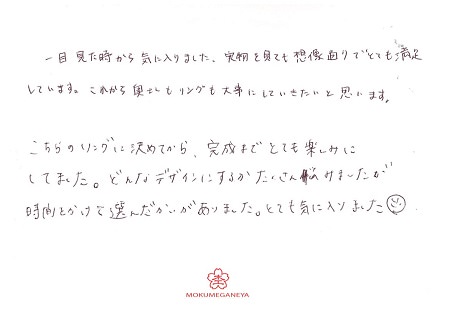 一目見た時から気に入りました、実物を見ても想像通りでとても満足
しています。これから奥さんもリングも大事にしていきたいと思います。
こちらのリングに決めてから、完成までとても楽しみに
してました。どんなデザインにするかたくさん悩みましたが
時間をかけて選んだかいがありました。とても気に入りました
MOKUMEGANEYA